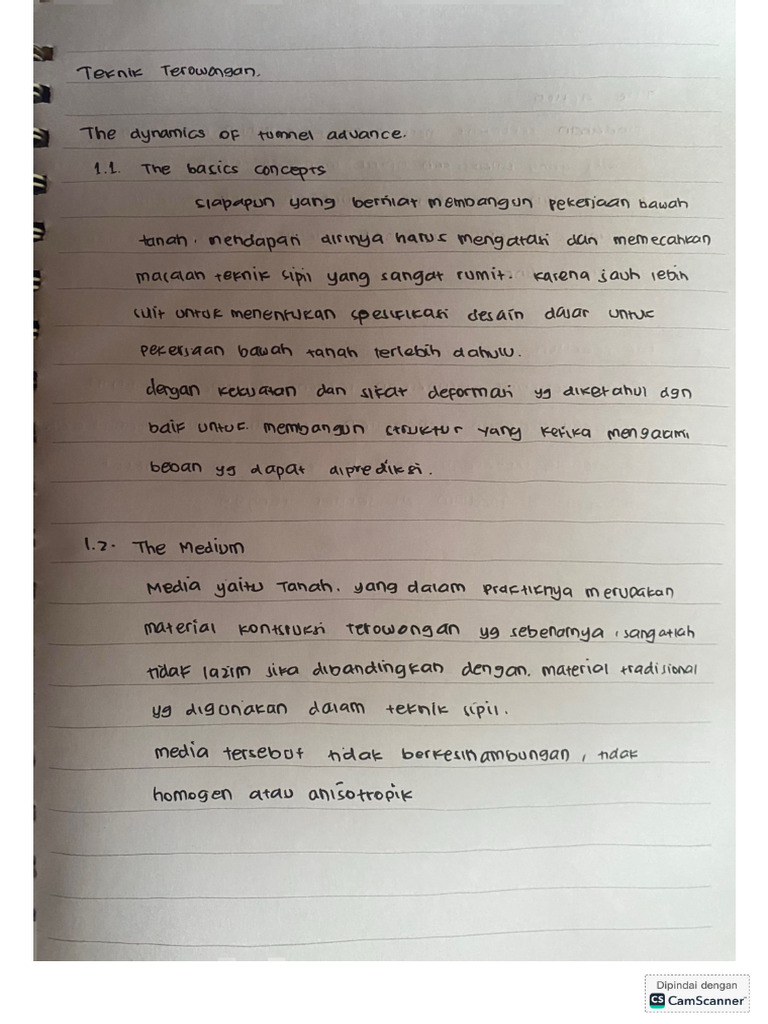 Teknik Terowongan.
The dynamics of tunnel advance.
1.1. The basics concepts
siapapun yang berniat membangun pekerjaan bawah
tanah. mendapati dirinya harus mengatasi dan memecahkan
masalah teknik sipil yang sangat rumit. karena jauh lebih
sulit untuk menentukan spesifikasi desain dasar untuk
pekerjaan bawah tanah terlebih dahulu.
dengan kekuatan dan sifat deformasi yg diketahui dgn
baik untuk membangun struktur yang ketika mengalami
beban yg dapat diprediksi.
1.2. The Medium
Media yaitu Tanah. yang dalam practiknya merupakan
material kontsruksi terowongan yg sebenarnya, sangatlah
tidak lazim jika dibandingkan dengan. material tradisional
yg digunakan dalam teknik sipil.
media tersebut tidak berkesinambungan, tidak
homogen atau anisotropik
Dipindai dengan
CS CamScanner